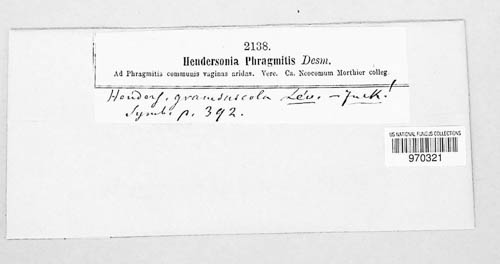 2138.
Hendersonia Phragmitis Desm.
Ad Phragmitis communis vaginas aridas. Vere. Ca. Neocomum Morthier colleg
Henders. graminicola Lév. — Fuck!
Symb. p. 392.
US NATIONAL FUNGUS COLLECTIONS
970321